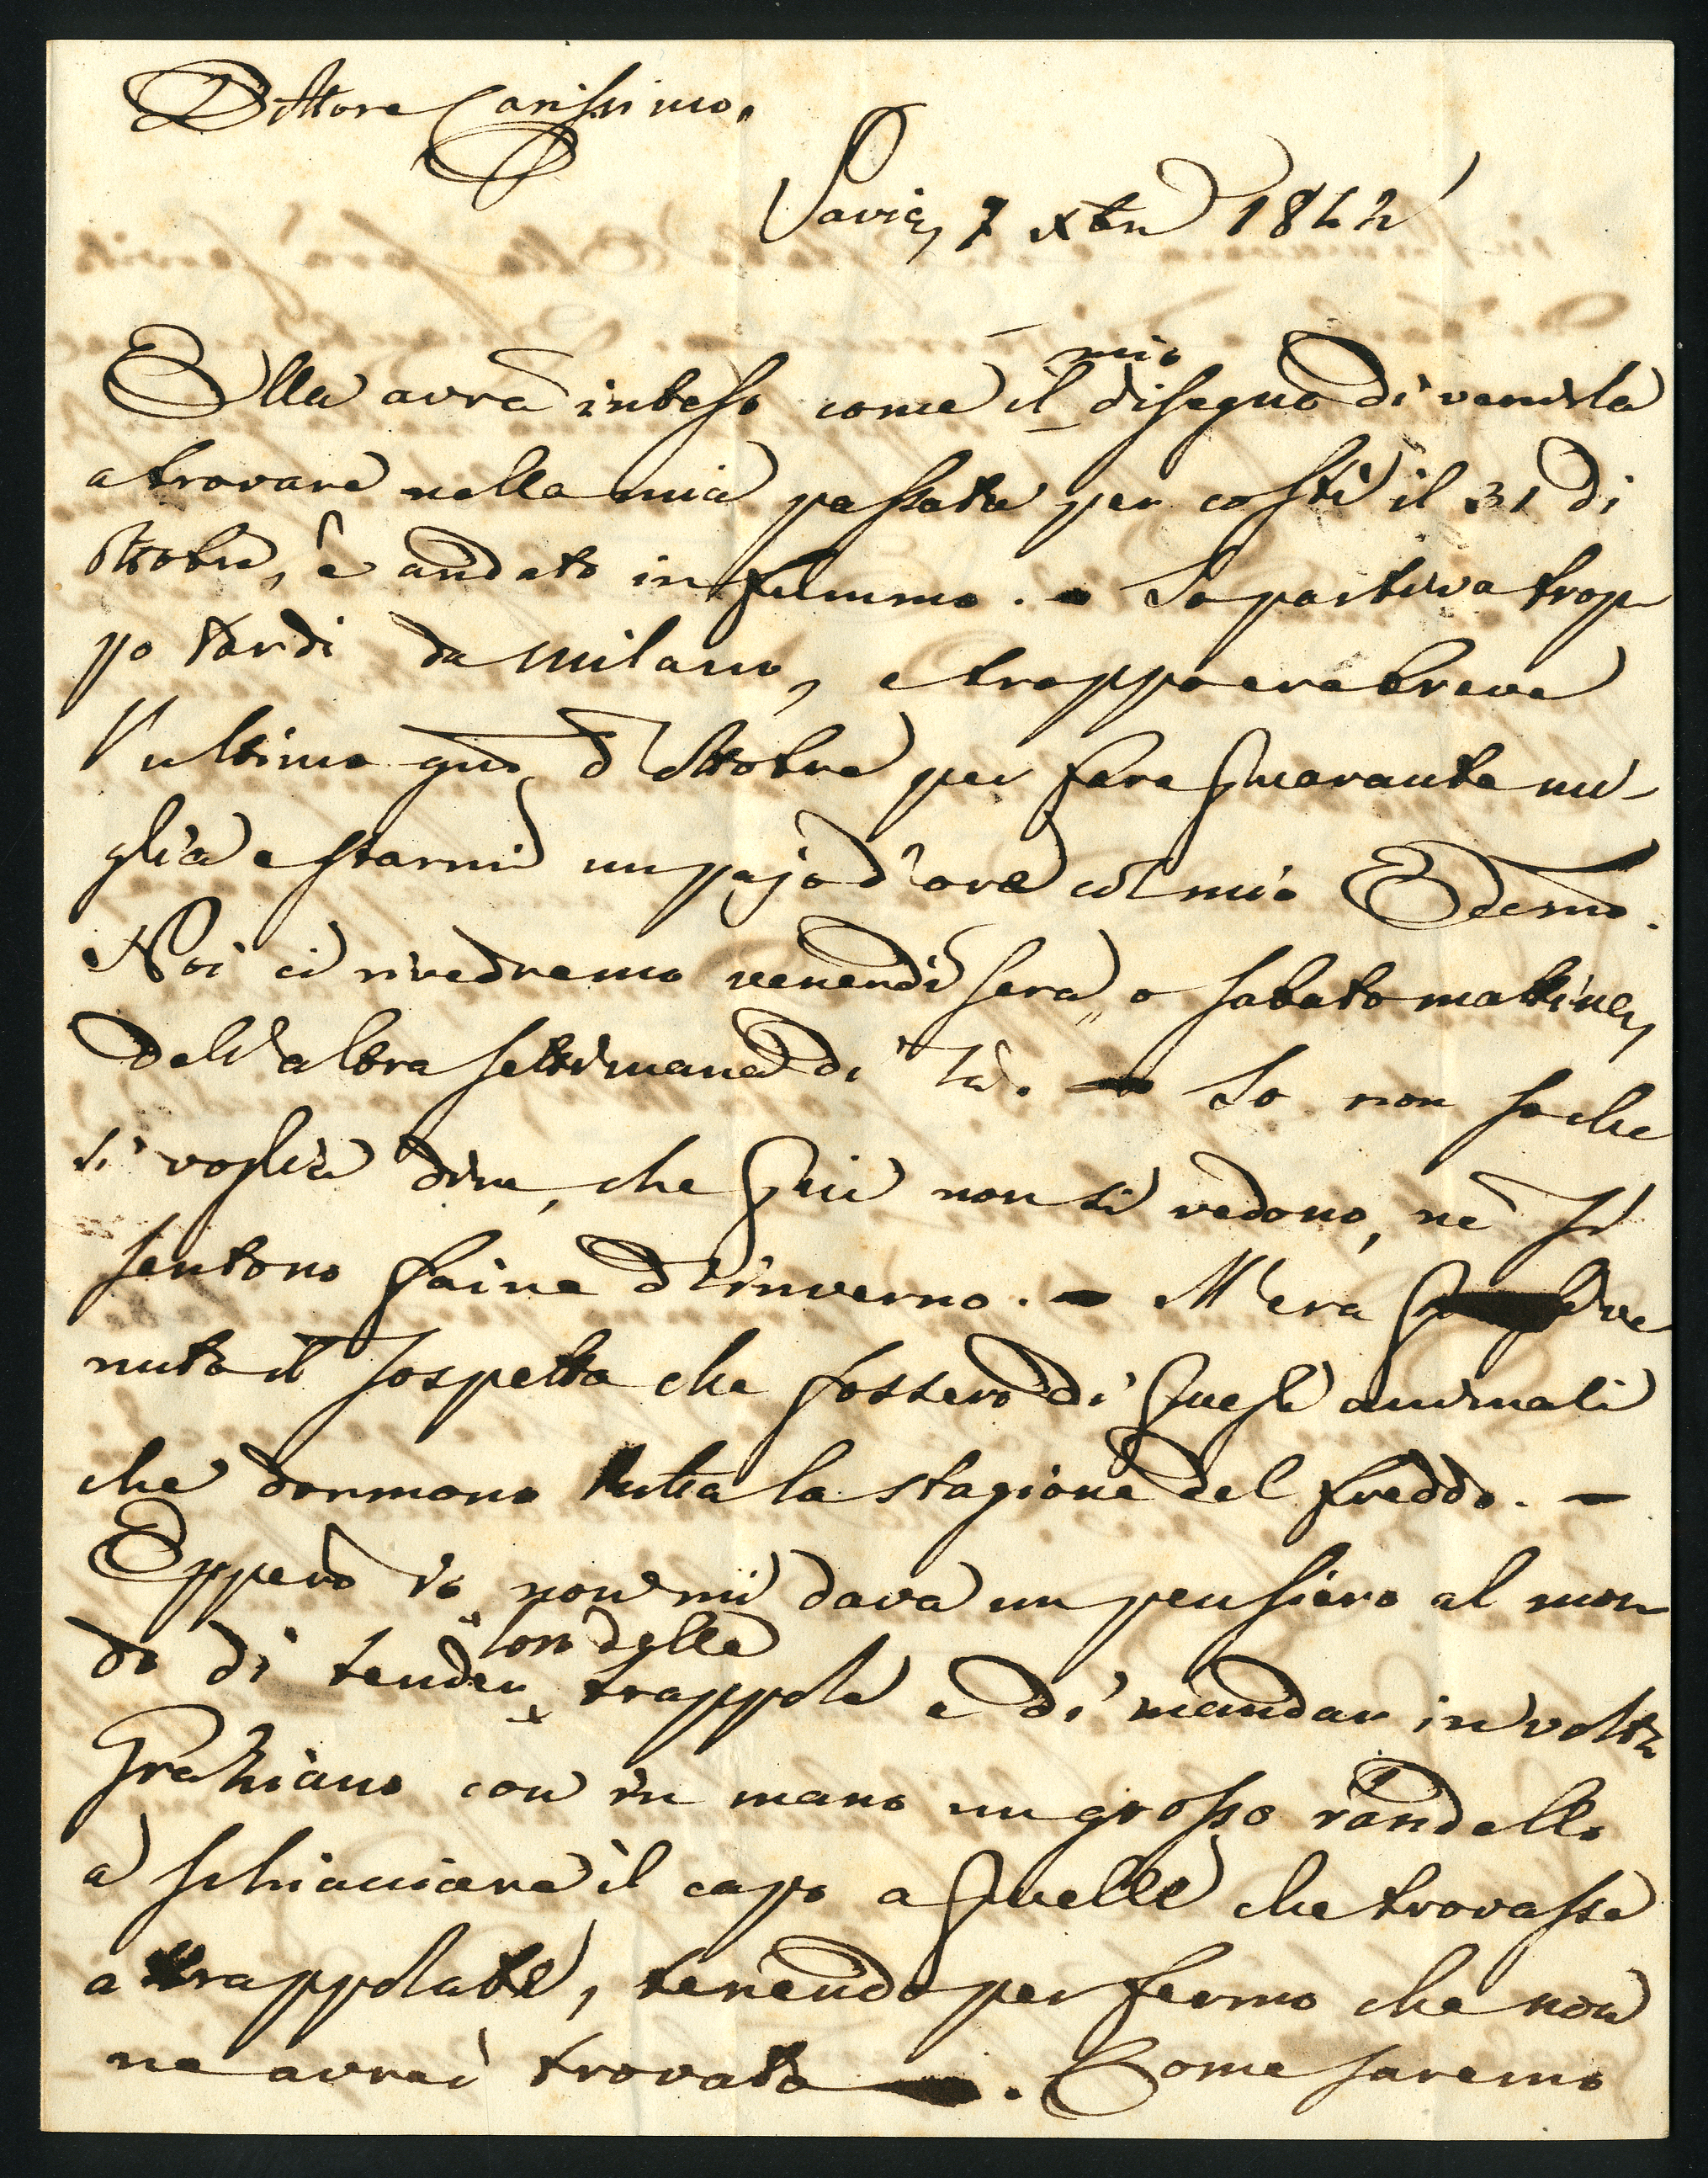 Dottore Carissimo,
Pavia, 7 xbre 1842
Ella avrà inteso come il mio disegno di venirla
a trovare nella mia passata per costì il 31 di
Ottobre, è andato in fummo. - Io partiva trop
po tardi da Milano, e troppo era breve
l'ultimo gno d'Ottobre per fare quaranta mi-
glia e starmi un pajo d'ore col mio
Noi ci rivedremo venerdì sera, o sabato mattina,
dell'altra settimana di là. - Io non so che
si voglia dire, che quì non si vedono, nè si
sentono faine d'inverno. - M'era ve
nuto il sospetto che fossero di quegli animali
che dormono tutta la stagione del freddo. -
Epperò io non mi dava un pensiero al mon
do di tender lor delle trappole e di mandar in volta
Graziano con in mano un grosso randello
a schiacciare il capo a quelle che trovasse
attrappolate, tenendo per fermo che non
ne avrei trovato . Come saremo